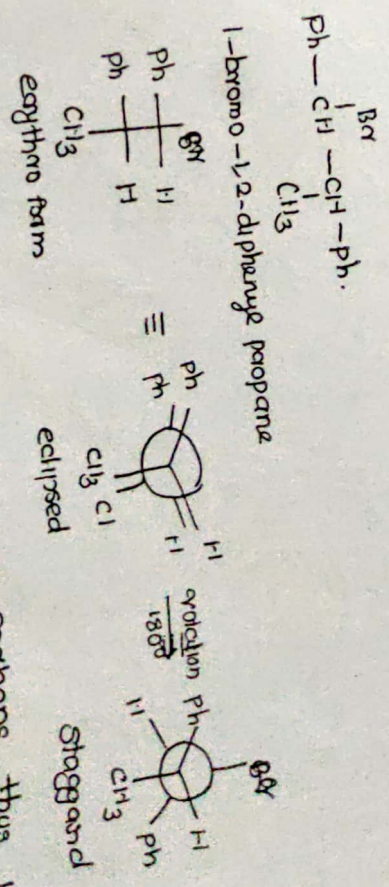 Br
Ph — CH — CH — Ph.
CH3
1-bromo-1,2-diphenye propane
Br
Ph H
Ph H
CH3
erythro form
≡
Ph
Ph
H
H
CH3 Cl
eclipsed
rotation
180°
Br
Ph
H
H
CH3
Ph
Staggard
thus